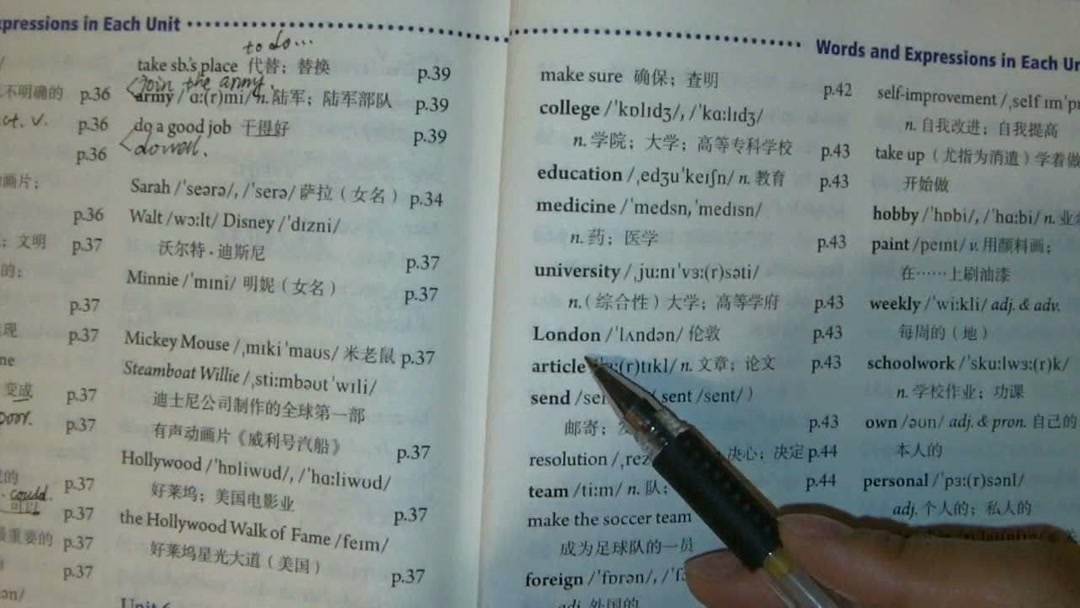 Expressions in Each Unit
不明确的 p.36
p.36
p.36
画片；
p.36
；文明 p.37
的；
p.37
现 p.37
变成 p.37
p.37
的 p.37
could.
可以 p.37
最重要的 p.37
p.37
to do...
take sb.'s place 代替；替换 p.39
join the army.
army /ˈɑː(r)mi/ n. 陆军；陆军部队 p.39
do a good job 干得好 p.39
do well.
Sarah /ˈseərə/, /ˈserə/ 萨拉（女名）p.34
Walt /wɔːlt/ Disney /ˈdɪzni/
沃尔特·迪斯尼 p.37
Minnie /ˈmɪni/ 明妮（女名） p.37
Mickey Mouse /ˌmɪki ˈmaʊs/ 米老鼠 p.37
Steamboat Willie /ˌstiːmbəʊt ˈwɪli/
迪士尼公司制作的全球第一部
有声动画片《威利号汽船》 p.37
Hollywood /ˈhɒliwʊd/, /ˈhɑːliwʊd/
好莱坞；美国电影业 p.37
the Hollywood Walk of Fame /feɪm/
好莱坞星光大道（美国） p.37
Words and Expressions in Each
make sure 确保；查明 p.42
college /ˈkɒlɪdʒ/, /ˈkɑːlɪdʒ/
n. 学院；大学；高等专科学校 p.43
education /ˌedʒuˈkeɪʃn/ n. 教育 p.43
medicine /ˈmedsn, ˈmedɪsn/
n. 药；医学 p.43
university /ˌjuːnɪˈvɜː(r)səti/
n.（综合性）大学；高等学府 p.43
London /ˈlʌndən/ 伦敦 p.43
article n. 文章；论文 p.43
send (sent /sent/)
邮寄； p.43
resolution 决心；决定 p.44
team /tiːm/ n. 队； p.44
make the soccer team
成为足球队的一员
foreign /ˈfɒrən/,
adj. 外国的
self-improvement
n. 自我改进；自我提高
take up（尤指为消遣）学着做
开始做
hobby /ˈhɒbi/, /ˈhɑːbi/ n.
paint /peɪnt/ v. 用颜料画；
在……上刷油漆
weekly /ˈwiːkli/ adj. & adv.
每周的（地）
schoolwork /ˈskuːlwɜː(r)k/
n. 学校作业；功课
own /əʊn/ adj. & pron. 自己的
本人的
personal /ˈpɜː(r)sənl/
adj. 个人的；私人的